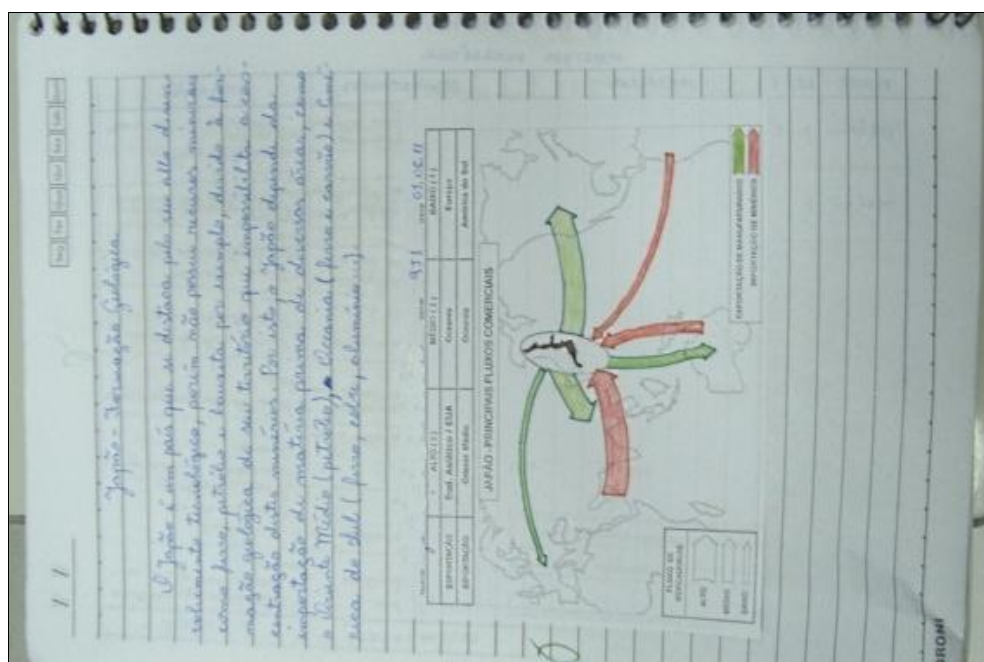 Seg Ter Qua Qui Sex Sáb Dom
/ /
Japão - Formação Geológica
O Japão é um país que se destaca pelo seu alto desen-
volvimento tecnológico, porém não possui recursos minerais
como ferro, petróleo e bauxita por exemplo, devido à for-
mação geológica de seu território que impossibilita a con-
centração destes minérios. Por isto, o Japão depende da
importação de matéria prima de diversas áreas, como
o Oriente Médio (petróleo), Oceania (ferro e carvão) e Amé-
rica do Sul (ferro, cobre, alumínio).
ALTO MÉDIO BAIXO
EXPORTAÇÃO Tind. Asiático / EUA Oceania Europa
IMPORTAÇÃO Oriente Médio Oceania América do Sul
JAPÃO: PRINCIPAIS FLUXOS COMERCIAIS
FLUXO DE MERCADORIAS
ALTO
MÉDIO
BAIXO
EXPORTAÇÃO DE MANUFATURADOS
IMPORTAÇÃO DE MINÉRIOS